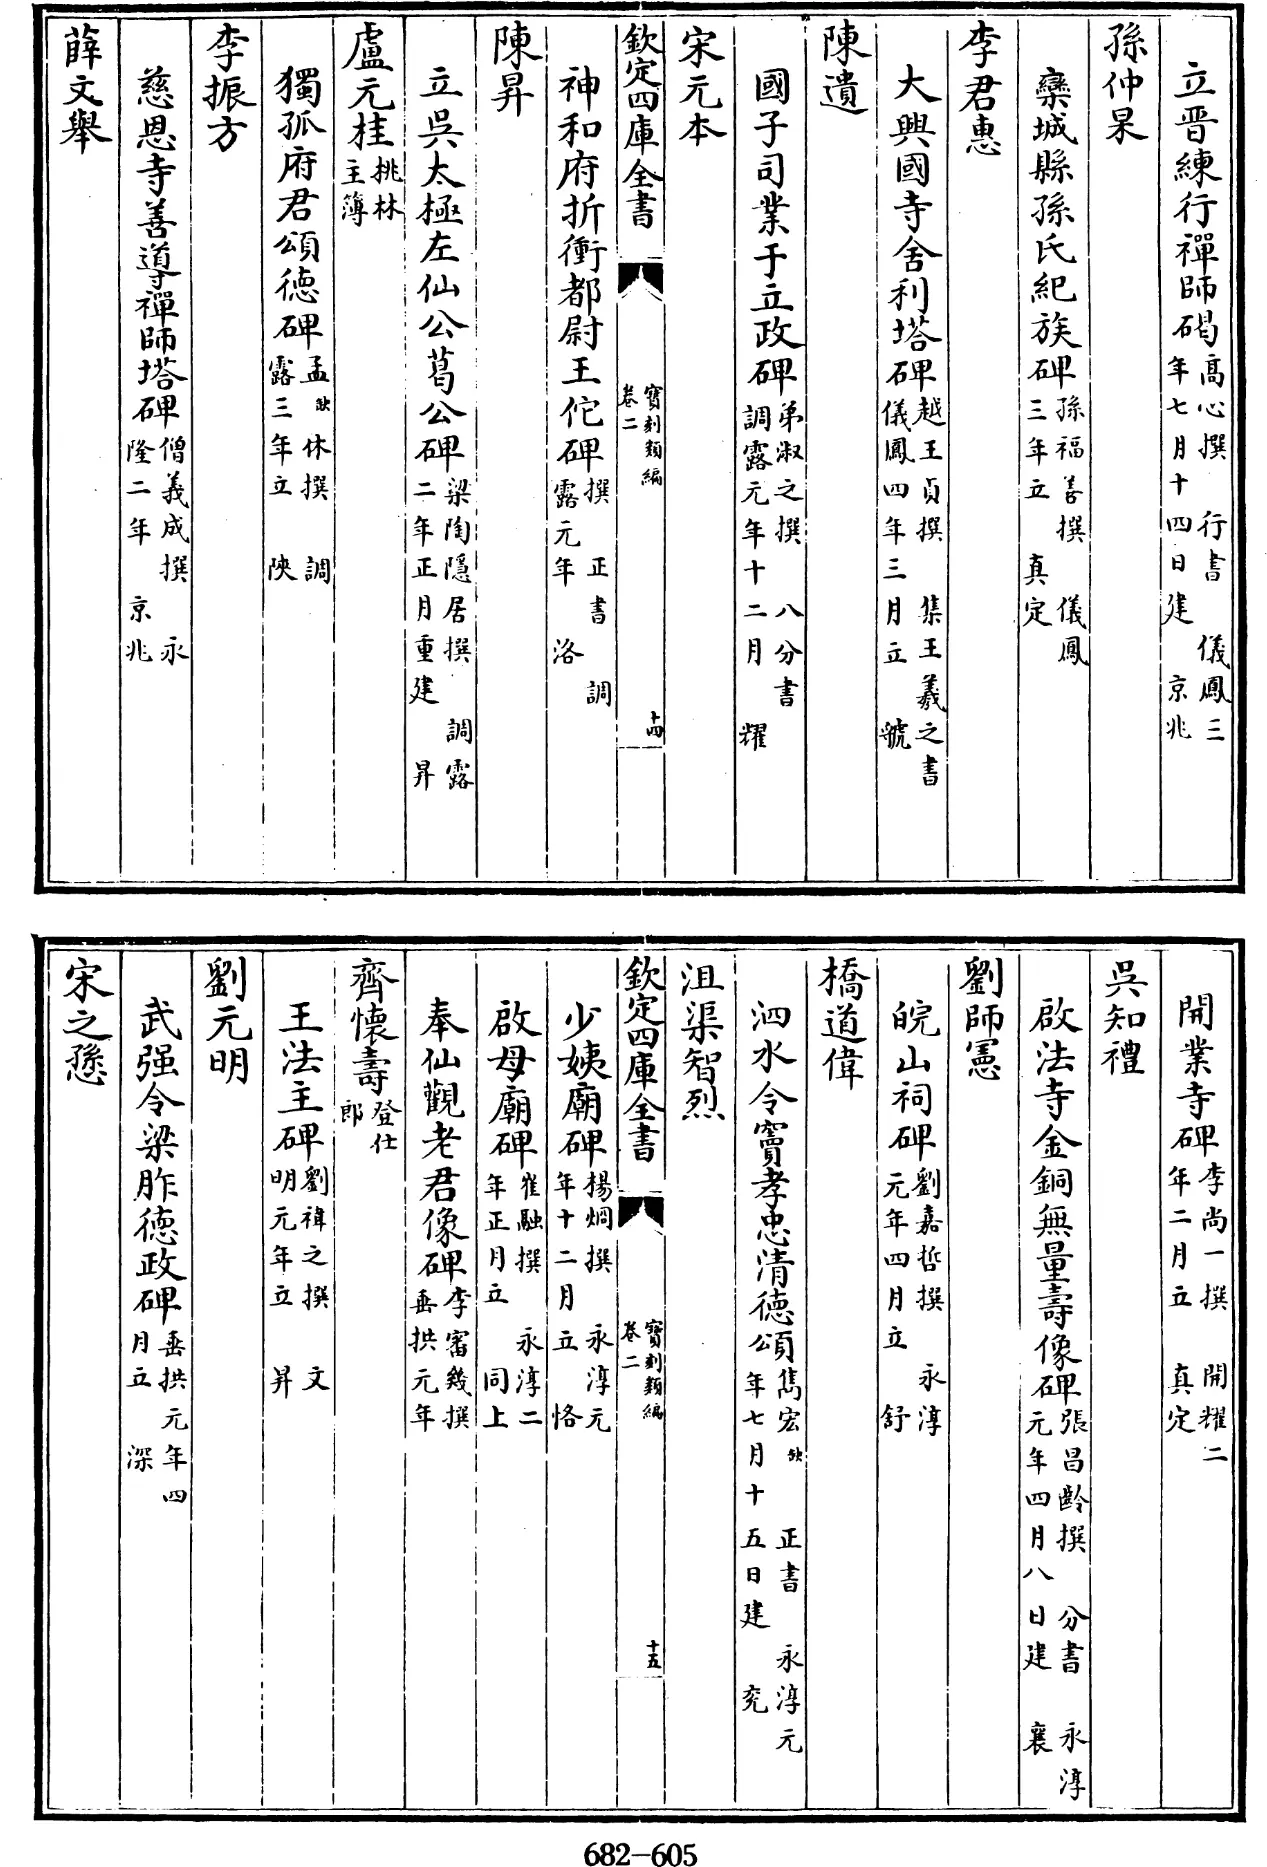 立晉練行禪師碣高心撰 行書 儀鳳三年七月十四日建 京兆
孫仲杲
欒城縣孫氏紀族碑孫福善撰 儀鳳三年立 真定
李君惠
大興國寺舍利塔碑越王貞撰 集王羲之書儀鳳四年三月立 虢
陳遺
國子司業于立政碑弟淑之撰 八分書調露元年十二月 耀
宋元本
欽定四庫全書 寶刻類編卷二 十四
神和府折衝都尉王佗碑撰 正書 調露元年 洛
陳昇
立吳太極左仙公葛公碑梁陶隱居撰 調露二年正月重建 昇
盧元桂挑林主簿
獨孤府君頌德碑孟缺休撰 調露三年立 陝
李振方
慈恩寺善導禪師塔碑僧義成撰 永隆二年 京兆
薛文舉
開業寺碑李尚一撰 開耀二年二月立 真定
吳知禮
啟法寺金銅無量壽像碑張昌齡撰 分書 永淳元年四月八日建 襄
劉師憲
皖山祠碑劉嘉哲撰 永淳元年四月立 舒
橋道偉
泗水令竇孝忠清德頌雋宏缺 正書 永淳元年七月十五日建 兖
沮渠智烈
欽定四庫全書 寶刻類編卷二 十五
少姨廟碑楊烱撰 永淳元年十二月立 恪
啟母廟碑崔融撰 永淳二年正月立 同上
奉仙觀老君像碑李審幾撰垂拱元年
齊懷壽登仕郎
王法主碑劉褘之撰 文明元年立 昇
劉元明
武强令梁胙德政碑垂拱元年四月立 深
宋之愻
682-605